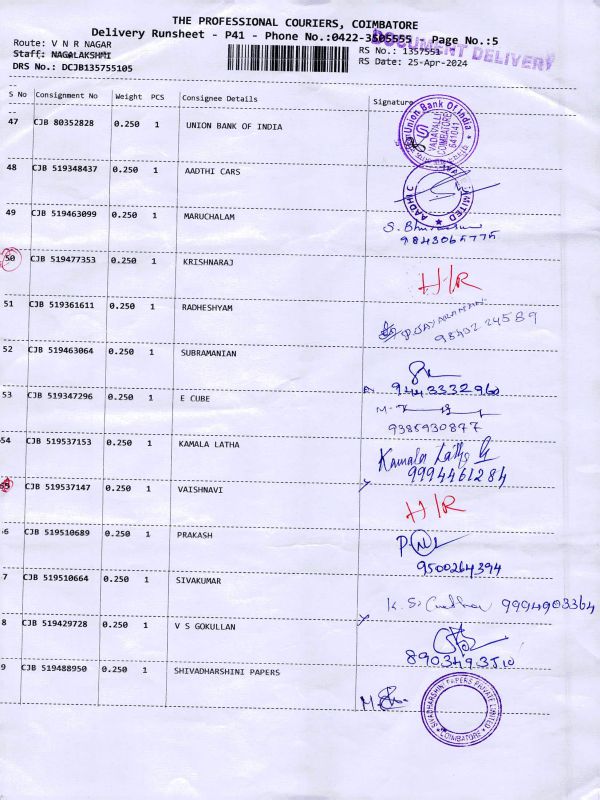 THE PROFESSIONAL COURIERS, COIMBATORE
Delivery Runsheet - P41 - Phone No.:0422-3505555 - Page No.:5
Route: V N R NAGAR
RS No.: 1357551
DOCUMENT DELIVERY
Staff: NAGALAKSHMI
RS Date: 25-Apr-2024
DRS No.: DCJB135755105
S No Consignment No Weight PCS Consignee Details Signature
47 CJB 80352828 0.250 1 UNION BANK OF INDIA
Union Bank Of India
VADAVALLI
COIMBATORE
641041
48 CJB 519348437 0.250 1 AADTHI CARS
AADHI C LIMITED
49 CJB 519463099 0.250 1 MARUCHALAM
S.
9843065775
50 CJB 519477353 0.250 1 KRISHNARAJ H/R
51 CJB 519361611 0.250 1 RADHESHYAM
98432 24589
52 CJB 519463064 0.250 1 SUBRAMANIAN
9443332960
53 CJB 519347296 0.250 1 E CUBE
9385930897
54 CJB 519537153 0.250 1 KAMALA LATHA
Kamala Latha G
9994461284
55 CJB 519537147 0.250 1 VAISHNAVI H/R
6 CJB 519510689 0.250 1 PRAKASH
9500264394
7 CJB 519510664 0.250 1 SIVAKUMAR
K. 9994903364
8 CJB 519429728 0.250 1 V S GOKULLAN
8903493510
9 CJB 519488950 0.250 1 SHIVADHARSHINI PAPERS
SIVADHARSHINI PAPERS PRIVATE LIMITED
COIMBATORE